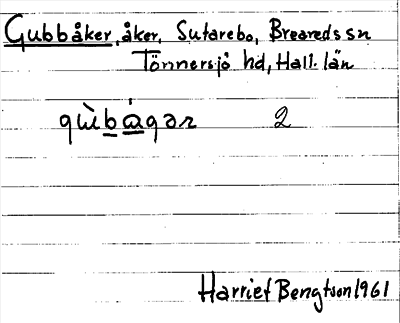 Gubbåker, åker, Sutarebo, Breareds sn
Tönnersjö hd, Hall. län
gùbågər 2
Harriet Bengtson 1961